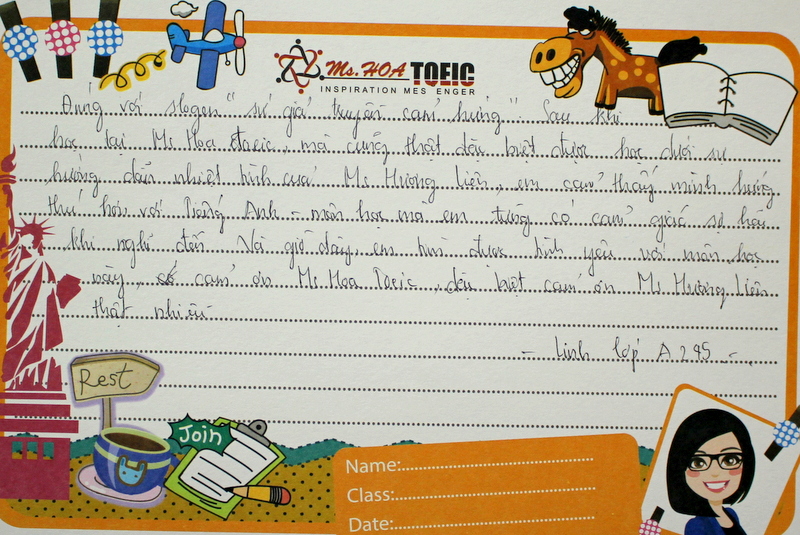 Ms.HOA TOEIC
INSPIRATION MES ENGER
Đúng với slogen "sứ giả truyền cảm hứng". Sau khi
học tại Ms Hoa toeic, mà cũng thật đặc biệt được học dưới sự
hướng dẫn nhiệt tình của Ms Hương Liên, em cảm thấy mình hứng
thú hơn với Tiếng Anh - môn học mà em từng có cảm giác sợ hãi
khi nghĩ đến. Và giờ đây, em tìm được tình yêu với môn học
này, cảm ơn Ms Hoa Toeic, đặc biệt cảm ơn Ms Hương Liên
thật nhiều
- Linh lớp A295 -
Rest
Join
Name:
Class:
Date: